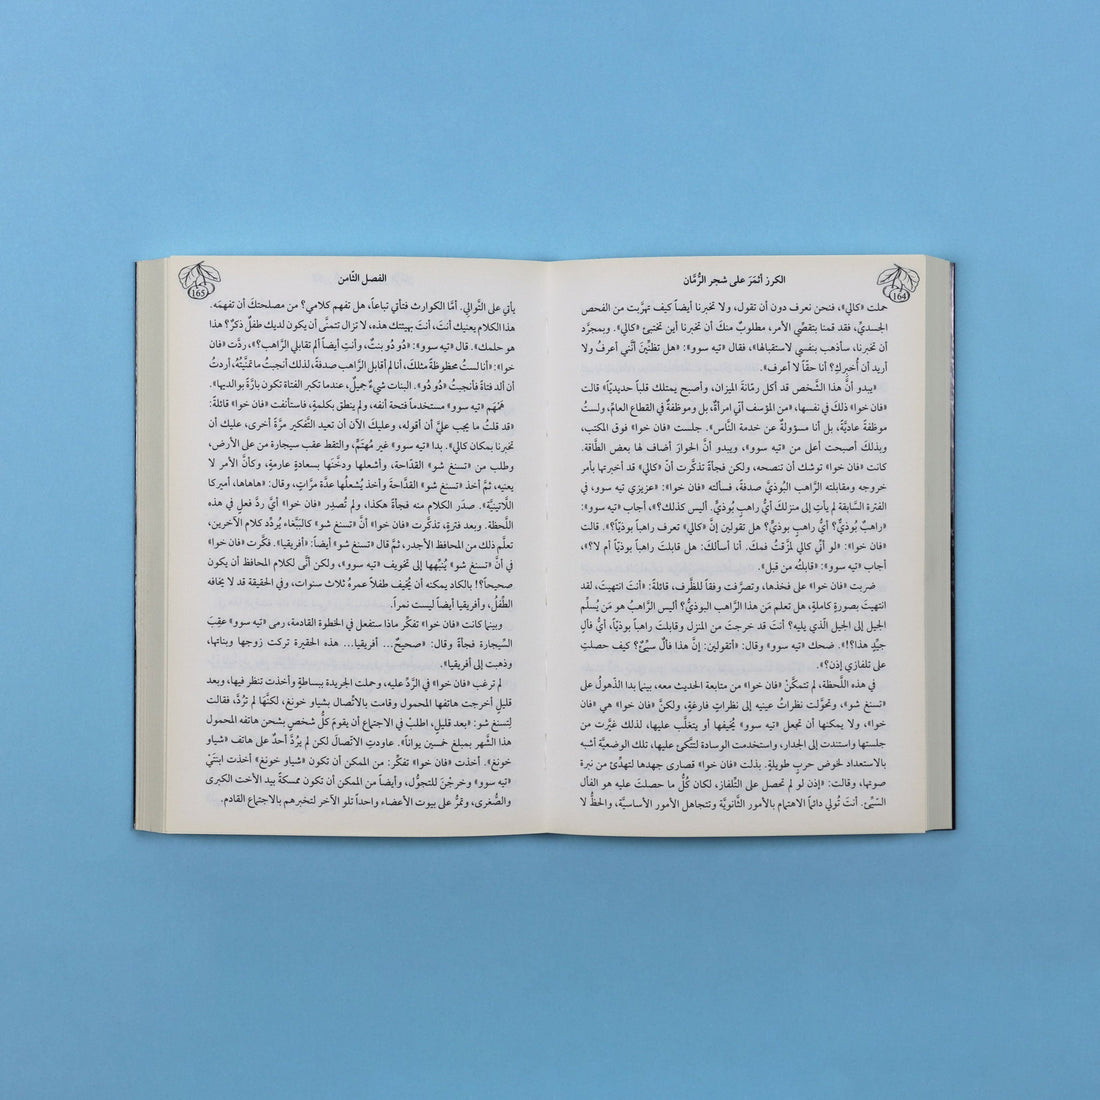 164
الكرز أثمَرَ على شجر الرُّمَّان
حملت «كالي»، فنحن نعرف دون أن تقول، ولا تخبرنا أيضاً كيف تهرَّبت من الفحص
الجسديِّ، فقد قمنا بتقصِّي الأمر، مطلوبٌ منكَ أن تخبرنا أين تختبئ «كالي». وبمجرَّد
أن تخبرنا، سأذهب بنفسي لاستقبالها»، فقال «تيه سوو»: «هل تظنِّينَ أنَّني أعرفُ ولا
أريد أن أُخبركِ؟ أنا حقّاً لا أعرف».
«يبدو أنَّ هذا الشَّخص قد أكل رمّانةَ الميزان، وأصبح يمتلك قلباً حديديّاً» قالت
«فان خوا» ذلكَ في نفسها، «من المؤسف أنّي امرأةٌ، بل وموظفةٌ في القطاع العامِّ، ولستُ
موظفةً عاديَّةً، بل أنا مسؤولةٌ عن خدمة النَّاس». جلست «فان خوا» فوق المكتب،
وبذلك أصبحت أعلى من «تيه سوو»، ويبدو أنَّ الحوارَ أضاف لها بعض الطَّاقة.
كانت «فان خوا» توشك أن تنصحه، ولكن فجأةً تذكَّرت أنَّ «كالي» قد أخبرتها بأمر
خروجه ومقابلته الرَّاهب البُوذيَّ صدفةً، فسألته «فان خوا»: «عزيزي تيه سوو، في
الفترة السَّابقة لم يأتِ إلى منزلكَ أيُّ راهبٍ بُوذيٍّ. أليس كذلك؟»، أجاب «تيه سوو»:
«راهبٌ بُوذيٌّ؟ أيُّ راهبٍ بوذيٍّ؟ هل تقولين إنَّ «كالي» تعرف راهباً بوذيّاً؟». قالت
«فان خوا»: «لو أنِّي كالي لمزَّقتُ فمكَ. أنا أسألكَ: هل قابلتَ راهباً بوذيّاً أم لا؟»،
أجاب «تيه سوو»: «قابلتُه من قبل».
ضربت «فان خوا» على فخذها، وتصرَّفت وفقاً للظَّرف، قائلةً: «أنتَ انتهيتَ، لقد
انتهيتَ بصورةٍ كاملةٍ، هل تعلم مَن هذا الرَّاهب البوذيُّ؟ أليس الرَّاهبُ هو مَن يُسلِّم
الجيل إلى الجيل الّذي يليه؟ أنتَ قد خرجتَ من المنزل وقابلتَ راهباً بوذيّاً، أيُّ فألٍ
جيِّدٍ هذا؟!». ضحك «تيه سوو» وقال: «أتقولين: إنَّ هذا فألٌ سيِّئٌ؟ كيف حصلتِ
على تلفازي إذن؟».
في هذه اللَّحظة، لم تتمكَّنْ «فان خوا» من متابعة الحديث معه، بينما بدا الذّهولُ على
«تسنغ شو»، وتحوَّلت نظراتُ عينيه إلى نظراتٍ فارغةٍ، ولكنَّ «فان خوا» هي «فان
خوا»، ولا يمكنها أن تجعل «تيه سوو» يُخيفها أو يتغلَّب عليها، لذلك غيَّرت من
جلستها واستندت إلى الجدار، واستخدمت الوسادة لتتَّكئ عليها، تلك الوضعيَّة أشبه
بالاستعداد لخوض حربٍ طويلةٍ. بذلت «فان خوا» قصارى جهدها لتهدِّئَ من نبرة
صوتها، وقالت: «إذن لو لم تحصل على التِّلفاز، لكان كُلُّ ما حصلتَ عليه هو الفأل
السَّيِّئ. أنتَ تُولي دائماً الاهتمام بالأمور الثَّانويَّة وتتجاهل الأمور الأساسيَّة، والحظُّ لا
165
الفصل الثّامن
يأتي على التَّوالي. أمَّا الكوارث فتأتي تباعاً، هل تفهم كلامي؟ من مصلحتكَ أن تفهمَه.
هذا الكلام يعنيك أنتَ، أنتَ بهيئتك هذه، لا تزال تتمنَّى أن يكون لديك طفلٌ ذكرٌ؟ هذا
هو حلمك». قال «تيه سوو»: «دُو دُو بنتٌ، وأنتِ أيضاً ألم تقابلي الرَّاهب؟»، ردَّت «فان
خوا»: «أنا لستُ محظوظةً مثلكَ، أنا لم أقابل الرَّاهب صدفةً، لذلك أنجبتُ ما تمنَّيتُهُ، أردتُ
أن ألد فتاةً فأنجبتُ «دُودُو». البنات شيءٌ جميلٌ، عندما تكبر الفتاة تكون بارَّةً بوالديها».
همْهَم «تيه سوو» مستخدماً فتحة أنفه، ولم ينطق بكلمةٍ، فاستأنفت «فان خوا» قائلةً:
«قد قلتُ ما يجب عليَّ أن أقوله، وعليكَ الآن أن تعيد التَّفكير مرَّةً أخرى، عليك أن
تخبرنا بمكان كالي». بدا «تيه سوو» غير مُهتَمٍّ، والتقط عقب سيجارة من على الأرض،
وطلب من «تسنغ شو» القدّاحة، وأشعلها ودخَّنها بسعادةٍ عارمةٍ، وكأنَّ الأمر لا
يعنيه، ثمَّ أخذ «تسنغ شو» القدَّاحةَ وأخذ يُشعلُها عدَّة مرَّاتٍ، وقال: «هاهاها، أميركا
اللَّاتينيَّة». صدَر الكلام منه فجأةً هكذا، ولم تُصدِر «فان خوا» أيَّ ردِّ فعلٍ في هذه
اللَّحظة. وبعد فترةٍ، تذكَّرت «فان خوا» أنَّ «تسنغ شو» كالبَبَّغاء يُردِّد كلام الآخرين،
تعلَّم ذلك من المحافظ الأجدر، ثمَّ قال «تسنغ شو» أيضاً: «أفريقيا». فكَّرت «فان خوا»
في أنَّ «تسنغ شو» يُنبِّهها إلى تخويف «تيه سوو»، ولكن أنَّى لكلام المحافظ أن يكون
صحيحاً؟! بالكاد يمكنه أن يُخيف طفلاً عمرهُ ثلاث سنوات، وفي الحقيقة قد لا يخافه
الطِّفلُ، وأفريقيا أيضاً ليست نمراً.
وبينما كانت «فان خوا» تفكِّر ماذا ستفعل في الخطوة القادمة، رمى «تيه سوو» عقِبَ
السِّيجارة فجأةً وقال: «صحيحٌ... أفريقيا... هذه الحقيرة تركت زوجها وبناتها،
وذهبت إلى أفريقيا».
لم ترغب «فان خوا» في الرَّدِّ عليه، وحملت الجريدة ببساطةٍ وأخذت تنظر فيها، وبعد
قليلٍ أخرجت هاتفها المحمول وقامت بالاتِّصال بشياو خونغ، لكنَّها لم تَرُدَّ، فقالت
لِتسنغ شو: «بعد قليلٍ، اطلبْ في الاجتماع أن يقومَ كلُّ شخصٍ بشحن هاتفه المحمول
هذا الشَّهر بمبلغ خمسين يواناً». عاودتِ الاتّصالَ لكن لم يرُدَّ أحدٌ على هاتف «شياو
خونغ». أخذت «فان خوا» تفكّر: من الممكن أن تكون «شياو خونغ» أخذت ابنتَيْ
«تيه سوو» وخرجْنَ للتجوُّل، وأيضاً من الممكن أن تكون ممسكةً بيد الأخت الكبرى
والصُّغرى، وتمرُّ على بيوت الأعضاء واحداً تلو الآخر لتخبرهم بالاجتماع القادم.